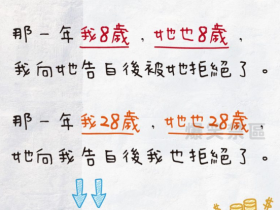 那一年我8歲，她也8歲，
我向她告白後被她拒絕了。
那一年我28歲，她也28歲，
她向我告白後我也拒絕了。